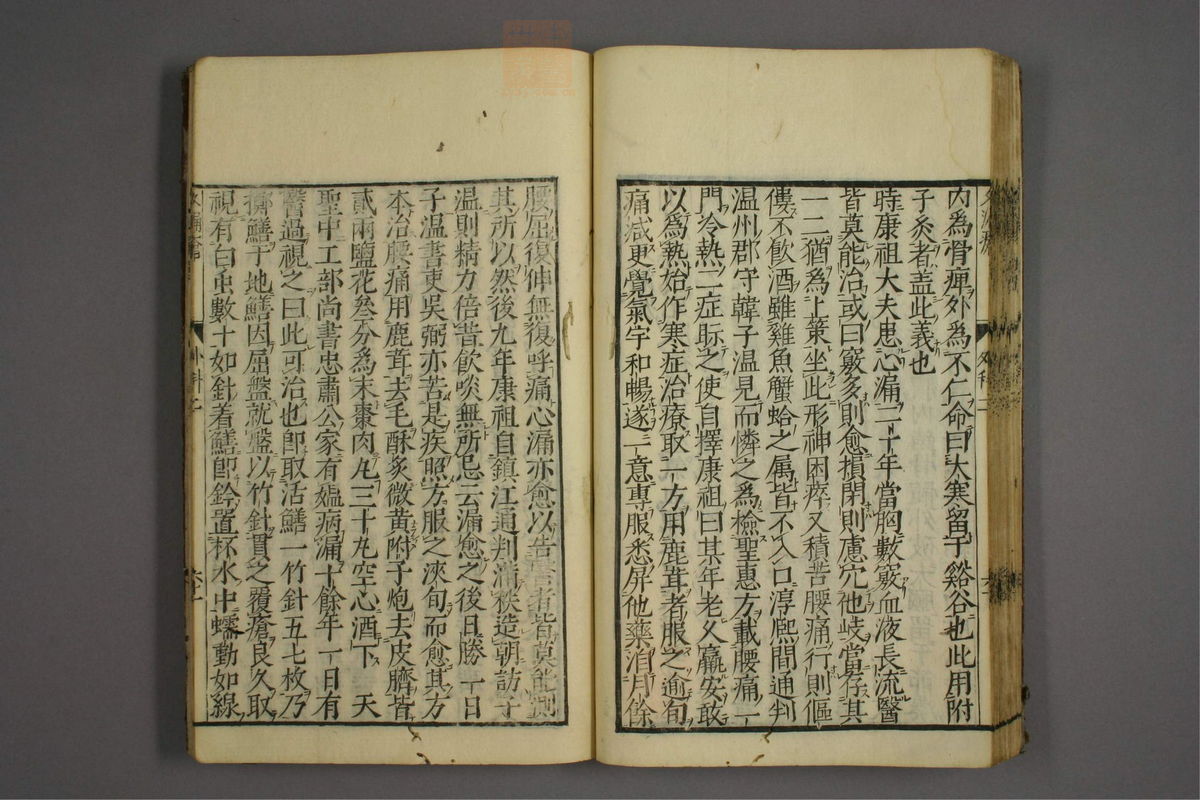 内爲骨痺外爲不仁命曰大寒留于谿谷也此用附
子炙者盖此義也
時康祖大夫患心漏二十年當胸數竅血液長流醫
皆莫能治或曰竅多則愈損閉則慮穴他岐當存其
一二猶爲上策坐此形神困瘁又積苦腰痛行則傴
僂不飲酒雖雞魚蟹蛤之属皆不入口淳熈間通判
温州郡守韓子温見而憐之爲檢聖惠方載腰痛一
門冷熱二症眎之使自擇康祖曰某年老久羸安敢
以爲熱始作寒症治療取一方用鹿茸者服之逾旬
痛减更覺氣宇和暢遂一意專服悉屏他藥洎月餘
腰屈復伸無復呼痛心漏亦愈以告醫者皆莫能測
其所以然後九年康祖自鎮江通判滿秩造朝訪子
温則精力倍昔飲啖無所忌云漏愈之後日勝一日
子温書吏吳弼亦苦是疾照方服之浹旬而愈其方
本治腰痛用鹿茸去毛酥炙微黄附子炮去皮臍皆
貳兩鹽花叄分爲末棗肉丸三十丸空心酒下　天
聖中工部尚書忠肅公家有媪病漏十餘年一日有
醫過視之曰此可治也卽取活鱔一竹針五七枚乃
擲鱔于地鱔因屈盤就盤以竹針貫之覆瘡良久取
視有白虫數十如針着鱔卽鈐置杯水中蠕動如線